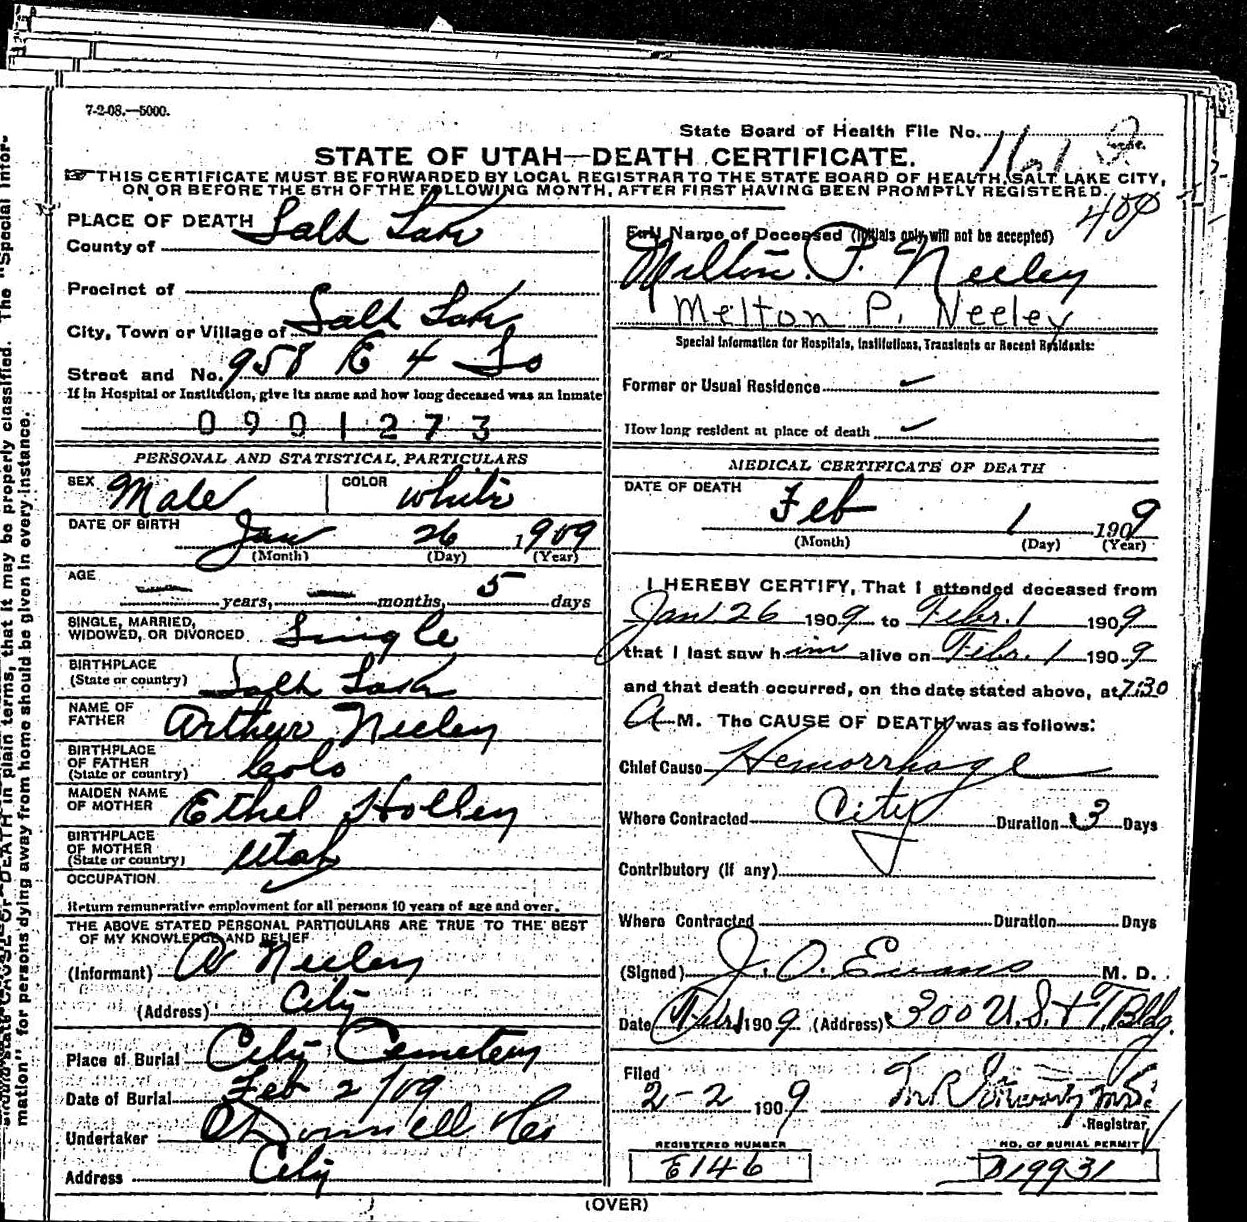 7-2-08.—5000.
State Board of Health File No.
STATE OF UTAH—DEATH CERTIFICATE.
THIS CERTIFICATE MUST BE FORWARDED BY LOCAL REGISTRAR TO THE STATE BOARD OF HEALTH, SALT LAKE CITY,
ON OR BEFORE THE 5TH OF THE FOLLOWING MONTH, AFTER FIRST HAVING BEEN PROMPTLY REGISTERED.
PLACE OF DEATH
County of Salt Lake
Precinct of
City, Town or Village of Salt Lake
Street and No. 958 E 4 So
If in Hospital or Institution, give its name and how long deceased was an inmate
0901273
PERSONAL AND STATISTICAL PARTICULARS
SEX Male COLOR White
DATE OF BIRTH Jan 26 1909
(Month) (Day) (Year)
AGE
years, months, 5 days
SINGLE, MARRIED,
WIDOWED, OR DIVORCED Single
BIRTHPLACE
(State or country) Salt Lake
NAME OF
FATHER Arthur Neeley
BIRTHPLACE
OF FATHER
(State or country) Colo
MAIDEN NAME
OF MOTHER Ethel Holley
BIRTHPLACE
OF MOTHER
(State or country) Utah
OCCUPATION
Return remunerative employment for all persons 10 years of age and over.
THE ABOVE STATED PERSONAL PARTICULARS ARE TRUE TO THE BEST
OF MY KNOWLEDGE AND BELIEF
(Informant) A Neeley
(Address) City
Place of Burial City Cemetery
Date of Burial Feb 2/09
Undertaker O'Donnell Co
Address City
Full Name of Deceased (Initials only will not be accepted)
Milton P. Neeley
Melton P. Neeley
Special Information for Hospitals, Institutions, Transients or Recent Residents:
Former or Usual Residence
How long resident at place of death
MEDICAL CERTIFICATE OF DEATH
DATE OF DEATH
Feb 1 1909
(Month) (Day) (Year)
I HEREBY CERTIFY, That I attended deceased from
Jan 26 1909 to Febr. 1 1909
that I last saw him alive on Febr. 1 1909
and that death occurred, on the date stated above, at 7:30
A M. The CAUSE OF DEATH was as follows:
Chief Cause Hemorrhage
Where Contracted City Duration 3 Days
Contributory (if any)
Where Contracted Duration Days
(Signed) J. O. Evans M. D.
Date 1909 (Address) 300 U.S. & T. Bldg.
Filed
2-2 1909
Registrar
REGISTERED NUMBER NO. OF BURIAL PERMIT
E146 B19931
(OVER)
mation" for persons dying away from home should be given in every instance.